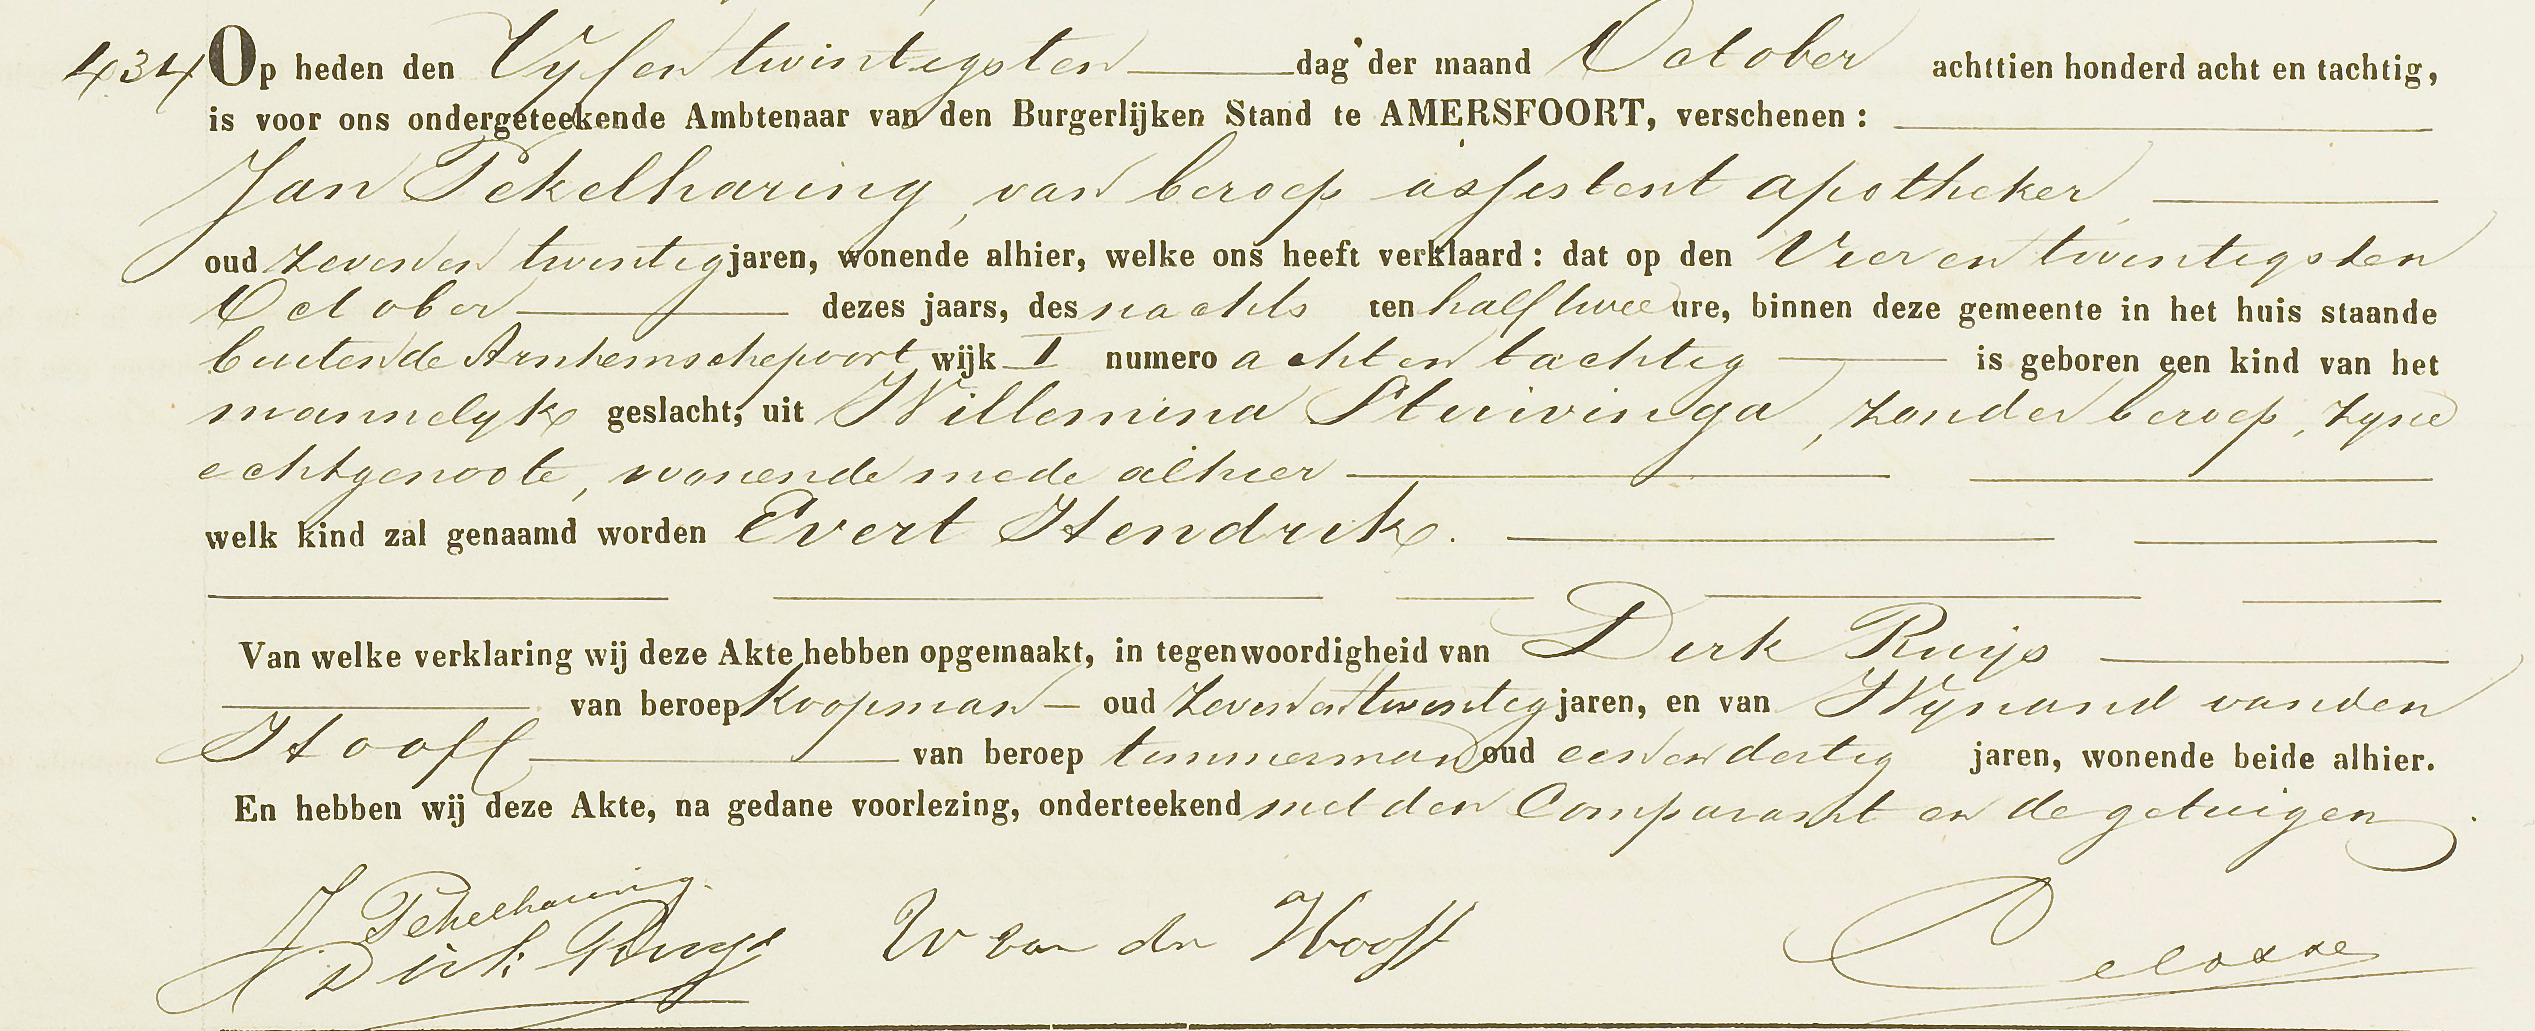 434 Op heden den Vyf en twintigsten dag der maand October achttien honderd acht en tachtig,
is voor ons ondergeteekende Ambtenaar van den Burgerlijken Stand te AMERSFOORT, verschenen :
Jan Pekelharing, van beroep assistent apotheker
oud zeven en twintig jaren, wonende alhier, welke ons heeft verklaard : dat op den Vier en twintigsten
October dezes jaars, des nachts ten half twee ure, binnen deze gemeente in het huis staande
buiten de Arnhemschepoort wijk I numero acht en tachtig is geboren een kind van het
mannelyk geslacht, uit Willemina Stuivinga, zonder beroep, zyne
echtgenoote, wonende mede alhier
welk kind zal genaamd worden Evert Hendrik.
Van welke verklaring wij deze Akte hebben opgemaakt, in tegenwoordigheid van Dirk Ruijs
van beroep koopman oud zeven en twintig jaren, en van Wynand van den
Hooff van beroep timmerman oud een en dertig jaren, wonende beide alhier.
En hebben wij deze Akte, na gedane voorlezing, onderteekend met den Comparant en de getuigen.
J Pekelharing.
Dirk Ruys W van den Hooff Celosse